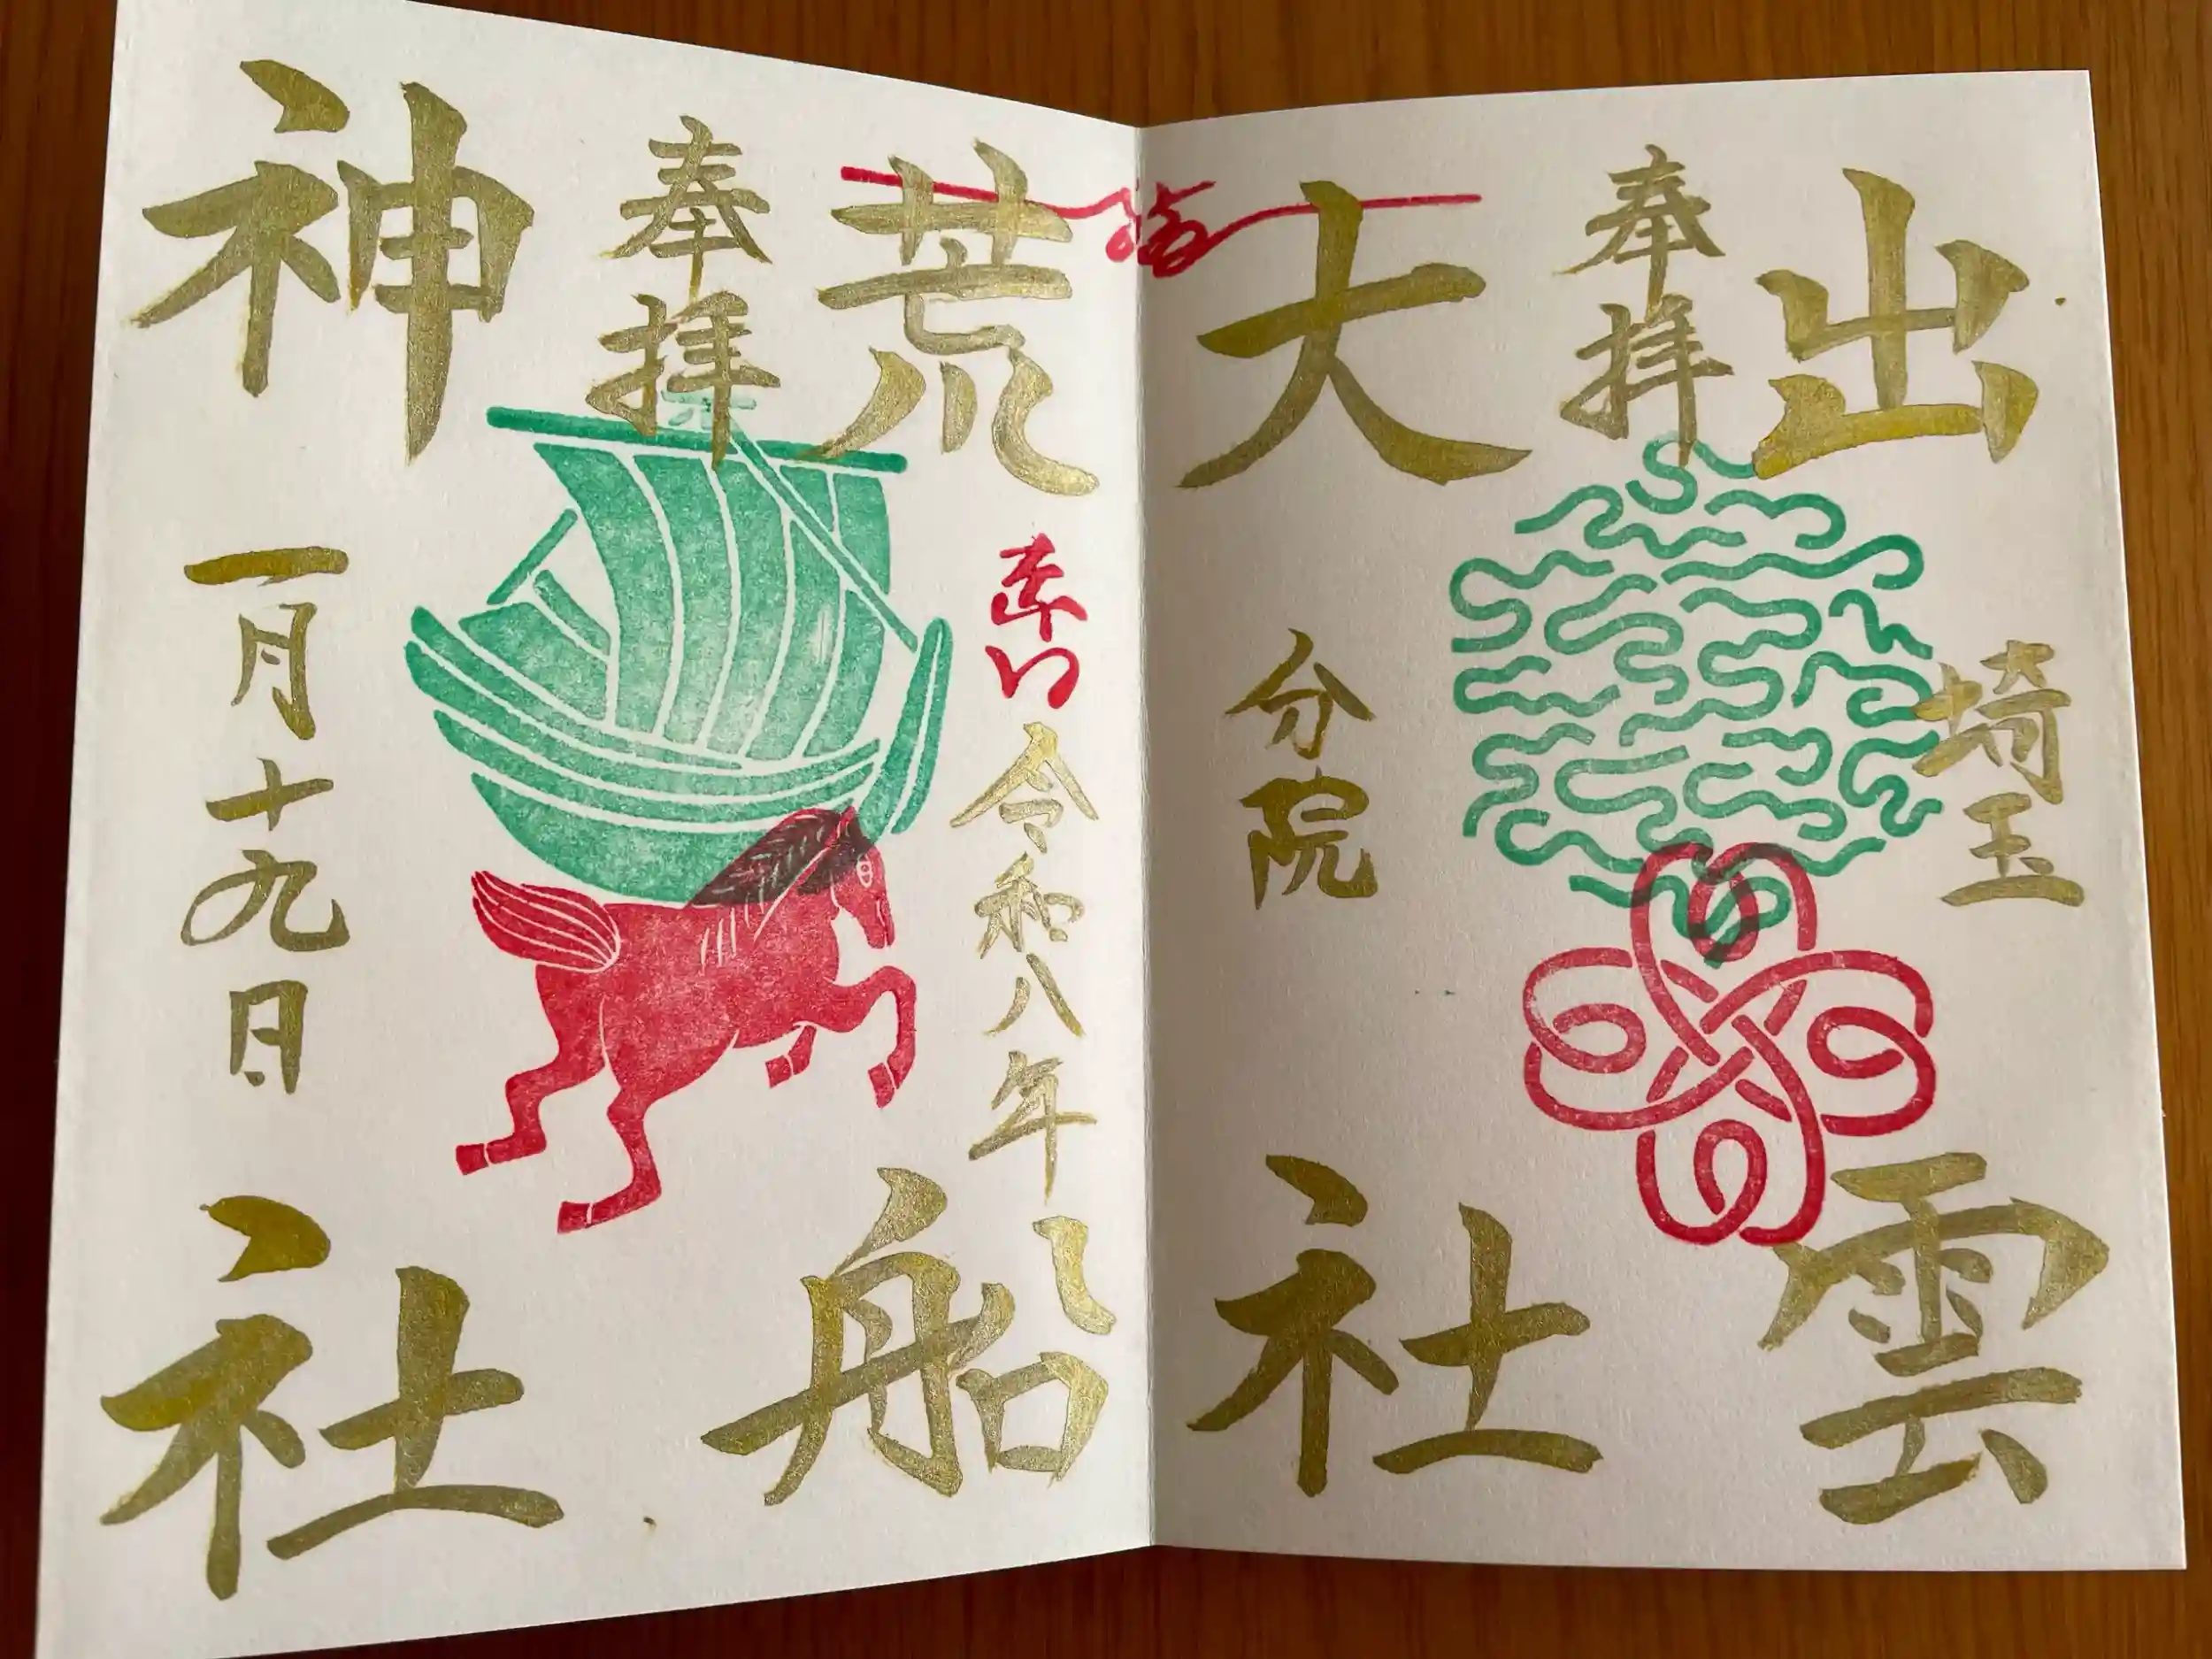 出雲
奉拝
埼玉
大社
分院
荒船
令和八年
奉拝
神社
一月十九日